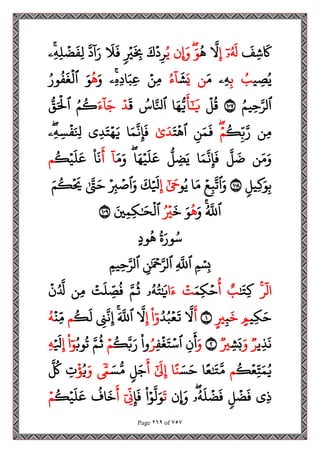 كَاشِفَ لَهُۥٓ إِلَّا هُوَ ۖ وَإِن يُرِدْكَ بِخَيْرٍ فَلَا رَآدَّ لِفَضْلِهِۦ ۚ
يُصِيبُ بِهِۦ مَن يَشَآءُ مِنْ عِبَادِهِۦ ۚ وَهُوَ ٱلْغَفُورُ
ٱلرَّحِيمُ ١٠٧ قُلْ يَٰٓأَيُّهَا ٱلنَّاسُ قَدْ جَآءَكُمُ ٱلْحَقُّ
مِن رَّبِّكُمْ ۖ فَمَنِ ٱهْتَدَىٰ فَإِنَّمَا يَهْتَدِى لِنَفْسِهِۦ ۖ
وَمَن ضَلَّ فَإِنَّمَا يَضِلُّ عَلَيْهَا ۖ وَمَآ أَنَا۠ عَلَيْكُم
بِوَكِيلٍ ١٠٨ وَٱتَّبِعْ مَا يُوحَىٰٓ إِلَيْكَ وَٱصْبِرْ حَتَّىٰ يَحْكُمَ
ٱللَّهُ ۚ وَهُوَ خَيْرُ ٱلْحَٰكِمِينَ ١٠٩
سُورَةُ هُودٍ
بِسْمِ ٱللَّهِ ٱلرَّحْمَٰنِ ٱلرَّحِيمِ
الٓر ۚ كِتَٰبٌ أُحْكِمَتْ ءَايَٰتُهُۥ ثُمَّ فُصِّلَتْ مِن لَّدُنْ
حَكِيمٍ خَبِيرٍ ١ أَلَّا تَعْبُدُوٓا۟ إِلَّا ٱللَّهَ ۚ إِنَّنِى لَكُم مِّنْهُ
نَذِيرٌ وَبَشِيرٌ ٢ وَأَنِ ٱسْتَغْفِرُوا۟ رَبَّكُمْ ثُمَّ تُوبُوٓا۟ إِلَيْهِ
يُمَتِّعْكُم مَّتَٰعًا حَسَنًا إِلَىٰٓ أَجَلٍ مُّسَمًّى وَيُؤْتِ كُلَّ
ذِى فَضْلٍ فَضْلَهُۥ ۖ وَإِن تَوَلَّوْا۟ فَإِنِّىٓ أَخَافُ عَلَيْكُمْ
Page ٢٦٩ of ٧٥٧